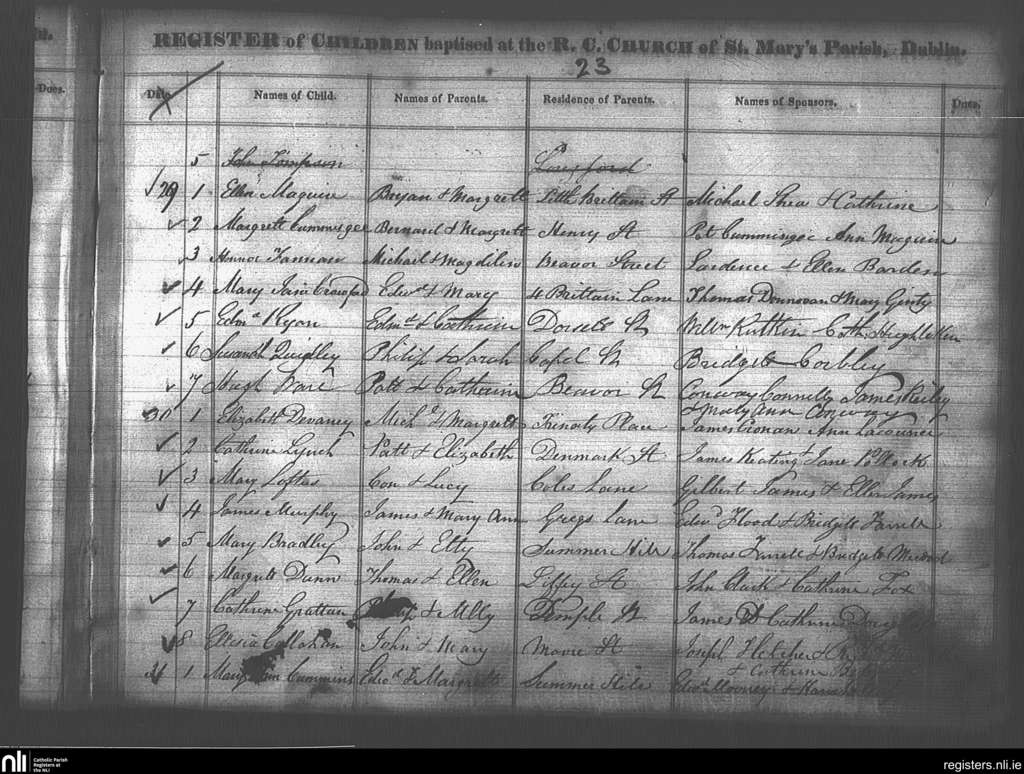 REGISTER of CHILDREN baptised at the R. C. CHURCH of St. Mary's Parish, Dublin.
23
Dues. Date Names of Child. Names of Parents. Residence of Parents. Names of Sponsors. Dues.
5 John Tompson Longford
29 1 Ellen Maguire Bryan & Margrett Little Brittain St Michael Shea & Cathrine
2 Margrett Bernard & Margrett Henry St Pat Ann
3 Honnor Michael & Magdilin Beavor Street & Ellen Barden
4 Mary Jain Crawford Edwd & Mary 4 Brittain Lane Thomas Donnovan & Mary Ginty
5 Edmd Ryon Edmd & Dorset St Cath
6 Susanah Quigley Philip & Sarah Capel St Bridgett Corbley
7 Hugh Ware Patt & Catharin Beavor St Conway Connelly James
& Mary Ann Conway
30 1 Elizabeth Devaney Michl & Margrett Trinaty Place James Cronan Ann
2 Cathrine Lynch Patt & Elizabeth Denmark St James Keating & Jane
3 Mary Loftas Con & Lucy Coles Lane Gilbert James & Ellen James
4 James Murphy James & Mary Ann Gregs Lane Edwd Flood & Bridgett Farrell
5 Mary Bradley John & Etty Summer Hill Thomas Farrell & Bridgett
6 Margrett Dunn Thomas & Ellen Liffey St John Clark & Cathrine Fox
7 Cathrine Grattan & Milly Temple St James & Cathrine
8 Callahan John & Mary Moore St Joseph Fletcher &
& Cathrine
31 1 Mary Ann Cummins Edwd & Margrett Summer Hill Edwd Mooney &
nli Catholic Parish Registers at the NLI registers.nli.ie